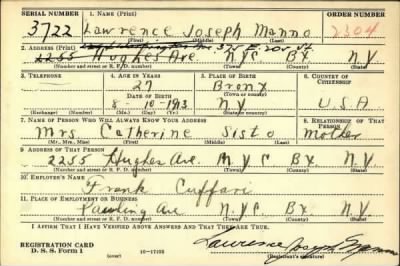 SERIAL NUMBER 1. NAME (Print) ORDER NUMBER
3722 Lawrence Joseph Manno 2304
(First) (Middle) (Last)
2. ADDRESS (Print)
2255 Hughes Ave. N.Y.C. Bx N.Y.
(Number and street or R. F. D. number) (Town) (County) (State)
3. TELEPHONE 4. AGE IN YEARS 5. PLACE OF BIRTH 6. COUNTRY OF CITIZENSHIP
27 Bronx
DATE OF BIRTH (Town or county)
8-10-1913 N.Y. U.S.A
(Exchange) (No.) (Mo.) (Day) (Yr.) (State or country)
7. NAME OF PERSON WHO WILL ALWAYS KNOW YOUR ADDRESS 8. RELATIONSHIP OF THAT PERSON
Mrs. Catherine Sisto Mother
(Mr., Mrs., Miss) (First) (Middle) (Last)
9. ADDRESS OF THAT PERSON
2255 Hughes Ave. N.Y.C Bx N.Y.
(Number and street or R. F. D. number) (Town) (County) (State)
10. EMPLOYER'S NAME
Frank Cuffari
11. PLACE OF EMPLOYMENT OR BUSINESS
Pawling Ave N.Y.C. Bx. N.Y.
(Number and street or R. F. D. number) (Town) (County) (State)
I AFFIRM THAT I HAVE VERIFIED ABOVE ANSWERS AND THAT THEY ARE TRUE.
REGISTRATION CARD
D. S. S. Form 1 (over) Lawrence Joseph Manno
(Registrant's signature)